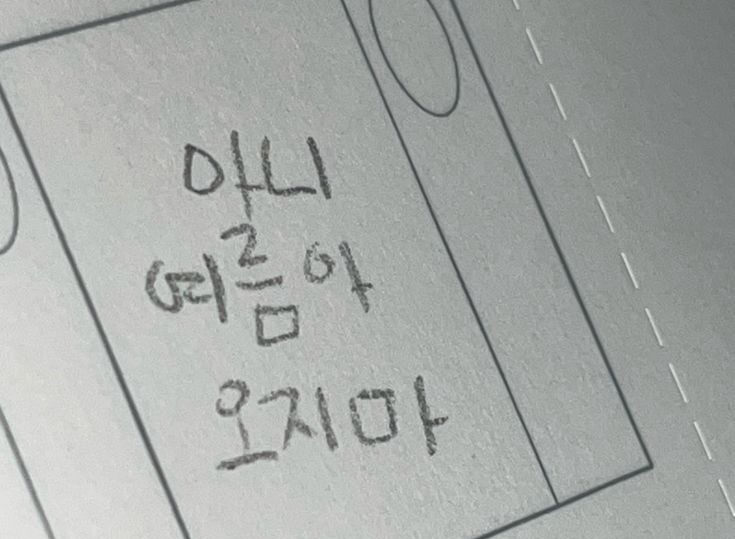 아니
여름아
오지마